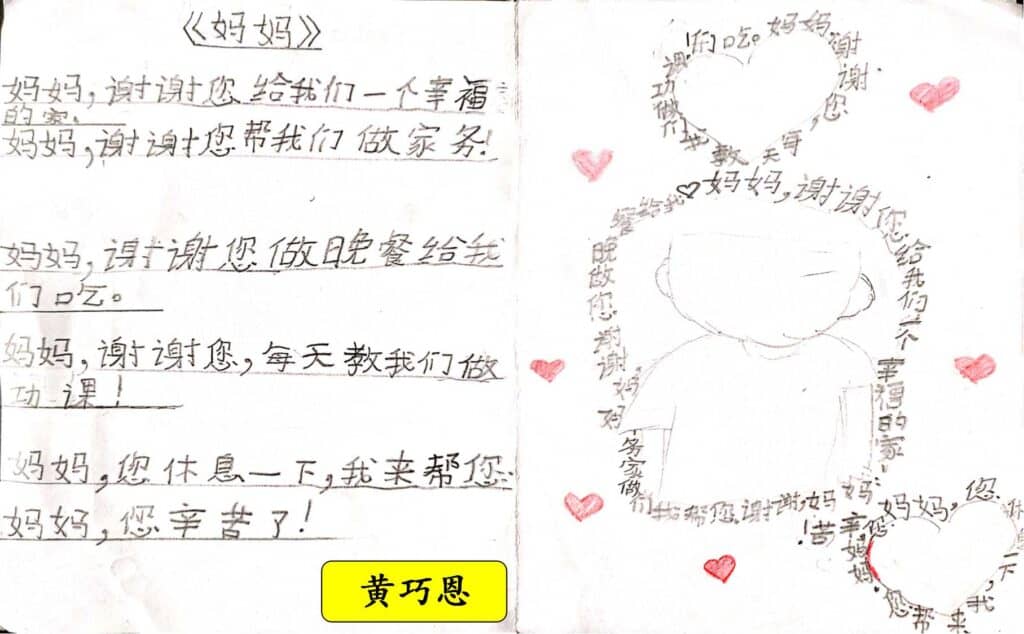 《妈妈》
妈妈,谢谢您给我们一个幸福
的家。
妈妈,谢谢您帮我们做家务!
妈妈,谢谢您做晚餐给我
们吃。
妈妈,谢谢您,每天教我们做
功课!
妈妈,您休息一下,我来帮您。
妈妈,您辛苦了!
黄巧恩
妈妈,谢谢您给我们一个幸福的家。
妈妈,谢谢您帮我们做家务
妈妈谢谢您做晚餐给我
们吃。
妈妈,谢谢您,每天教我们做功课!
妈妈,您休息一下,我来帮您
妈妈,您辛苦!